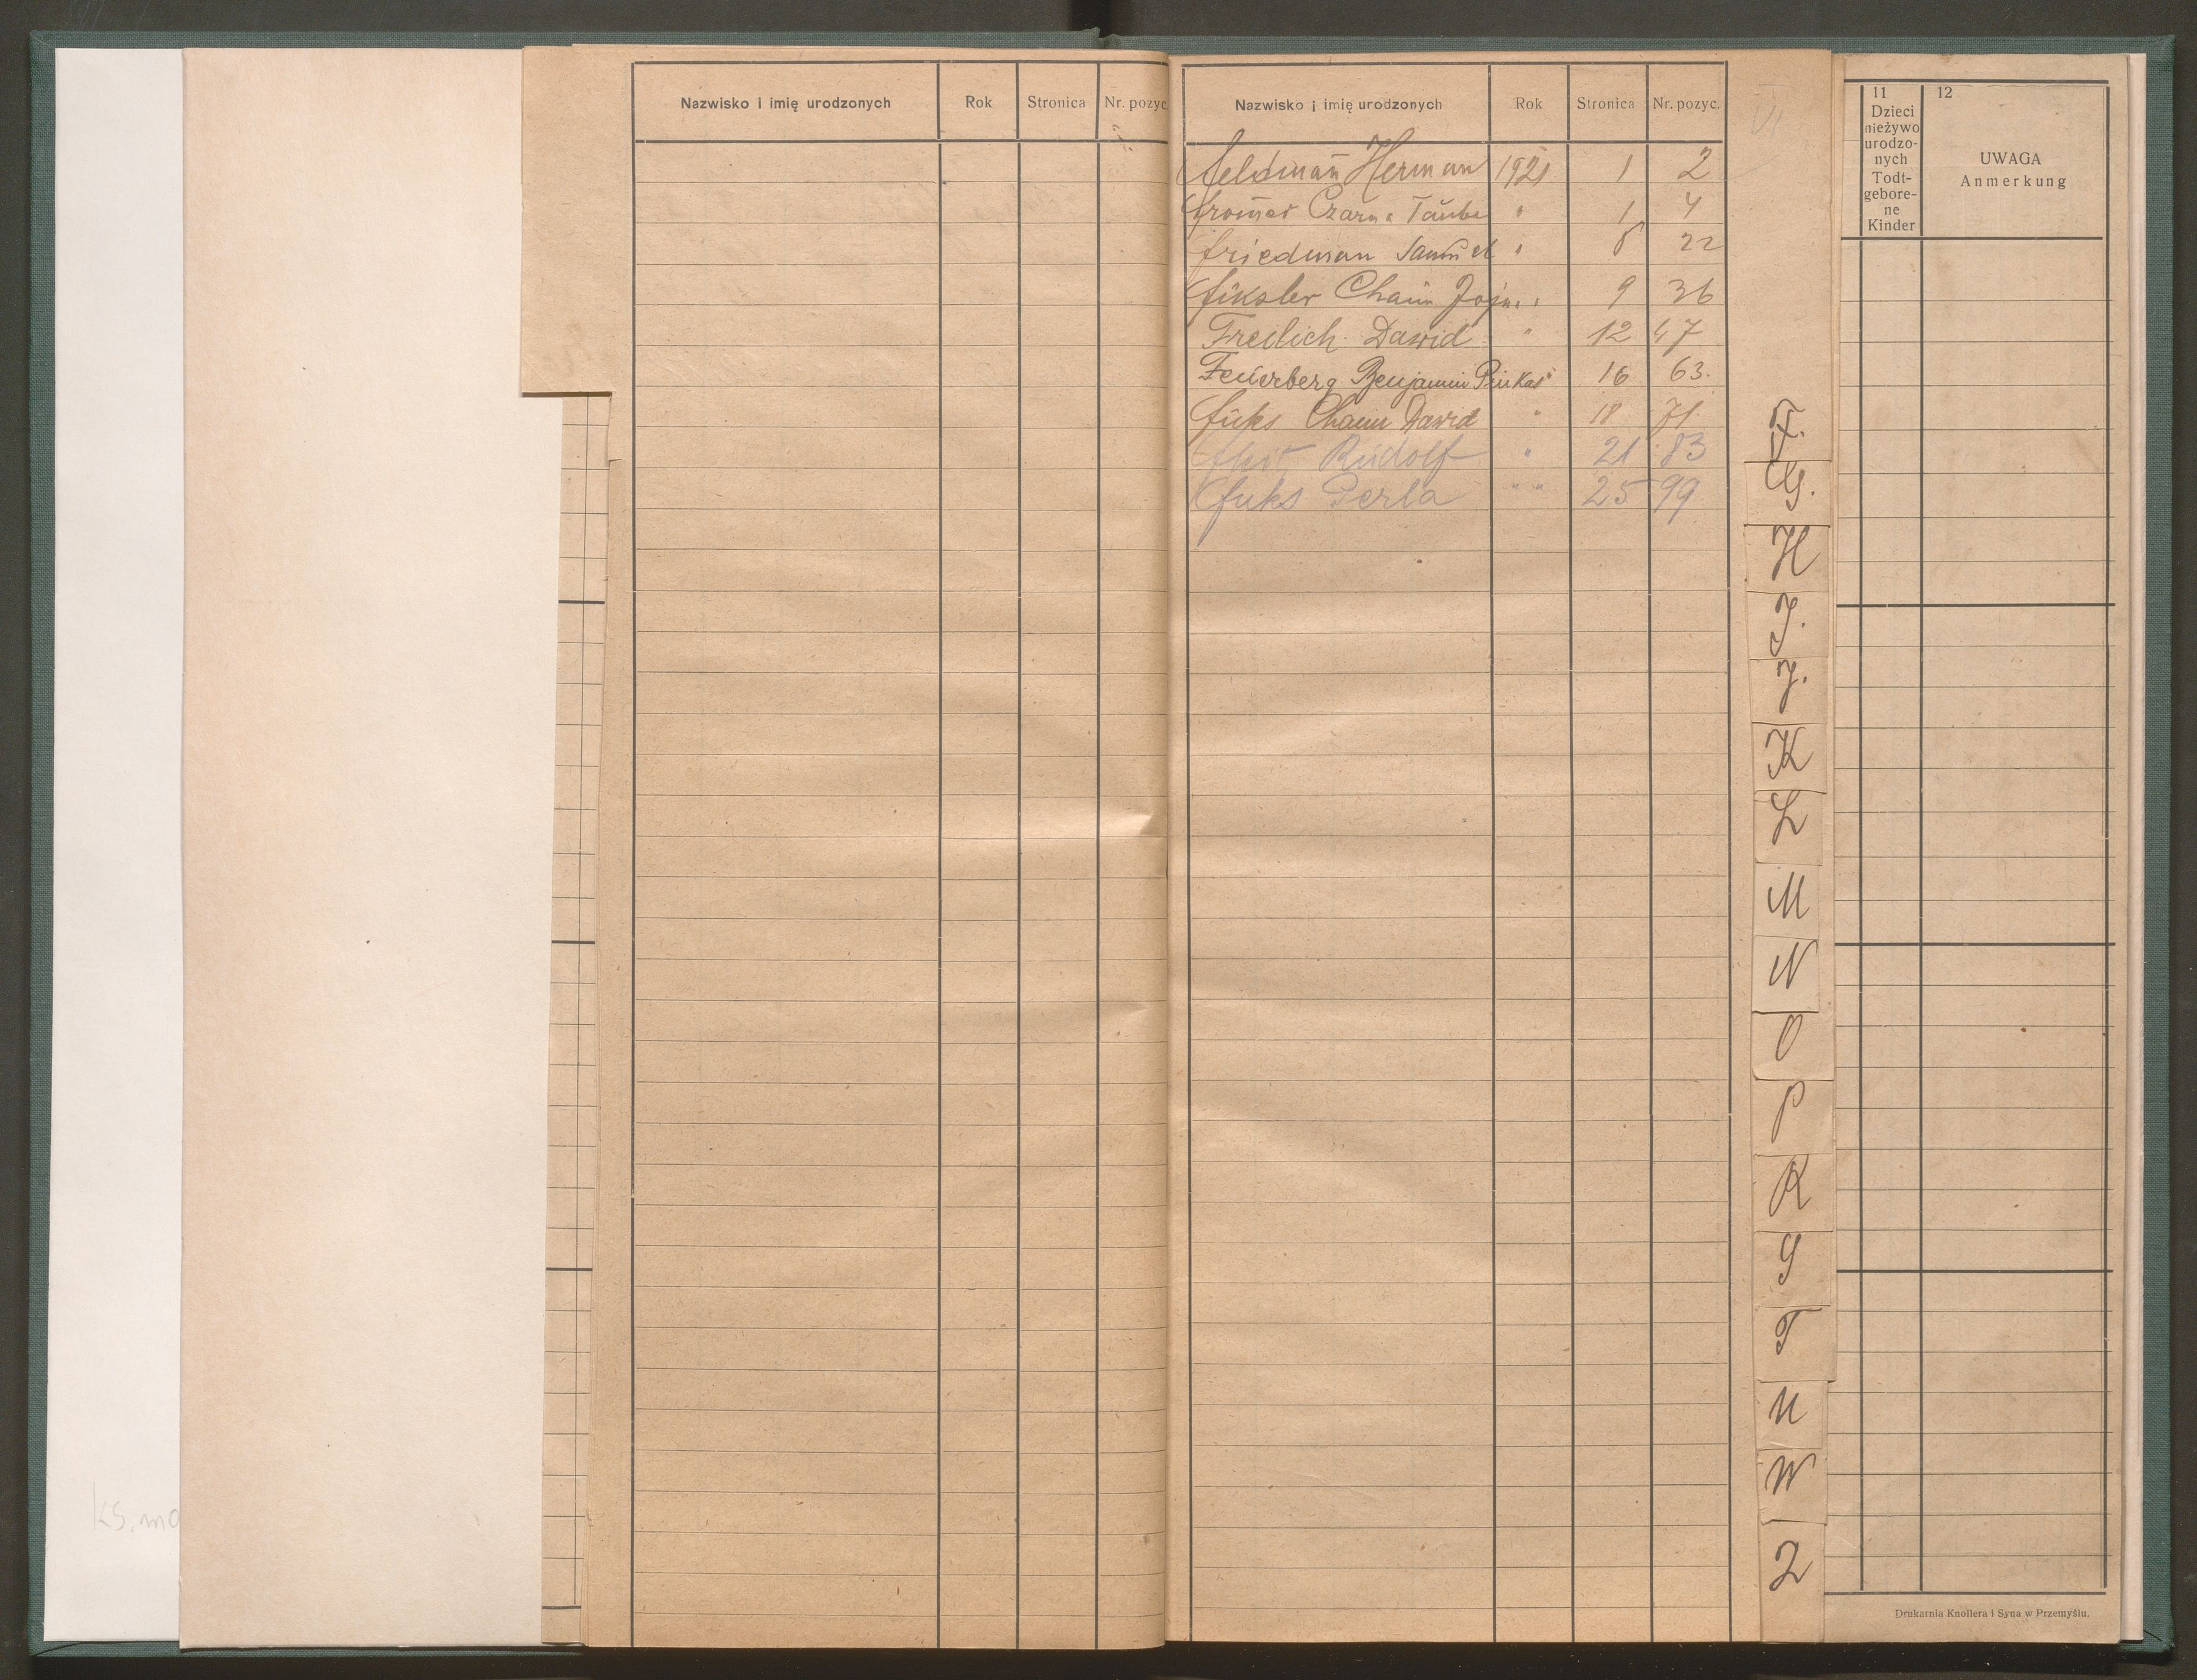 Nazwisko i imię urodzonych Rok Stronica Nr. pozyc
Nazwisko i imię urodzonych Rok Stronica Nr. pozyc.
Feldman Herman 1921 1 2
Fromer Czarna Taube " 1 4
Friedman Samuel " 22
Fiksler Chaim Jojne " 9 36
Freilich Dawid " 12 47
Feuerberg Benjamin Pinkas " 16 63.
Fuks Chaim Dawid " 18 71.
Rudolf " 21 83
Fuks Perla " " 25 99
VI
F.
G.
H
J.
J.
K
L
M
N
O
P
R
S
T
U
W
Z
11
Dzieci
nieżywo
urodzo-
nych
Todt-
gebore-
ne
Kinder
12
UWAGA
Anmerkung
Drukarnia Knollera i Syna w Przemyślu.
ks. mo